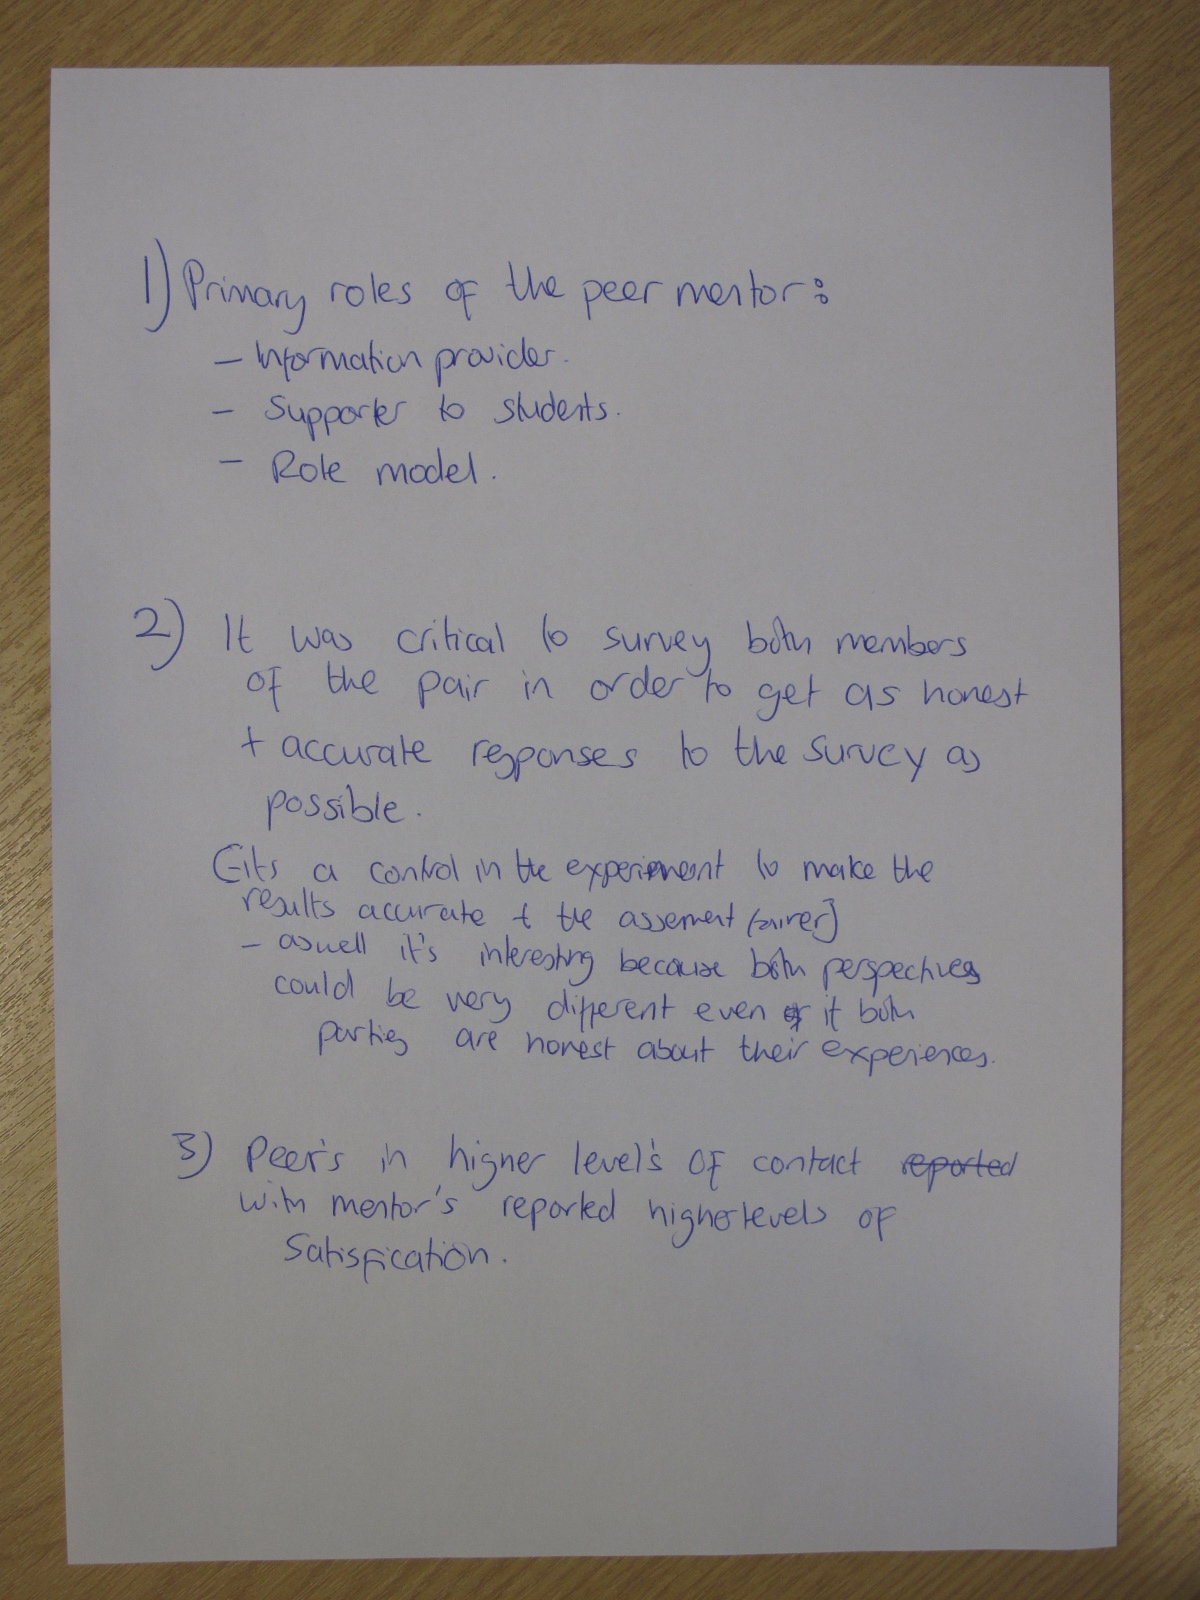 1) Primary roles of the peer mentor:
– Information provider.
– Supporter to students.
– Role model.
2) It was critical to survey both members
of the pair in order to get as honest
+ accurate responses to the survey as
possible.
[its a control in the experiement to make the
results accurate + the assement fairer]
– aswell it's interesting because both perspectives
could be very different even if both
parties are honest about their experiences.
3) Peer's in higher level's of contact reported
with mentor's reported higher levels of
Satisfication.